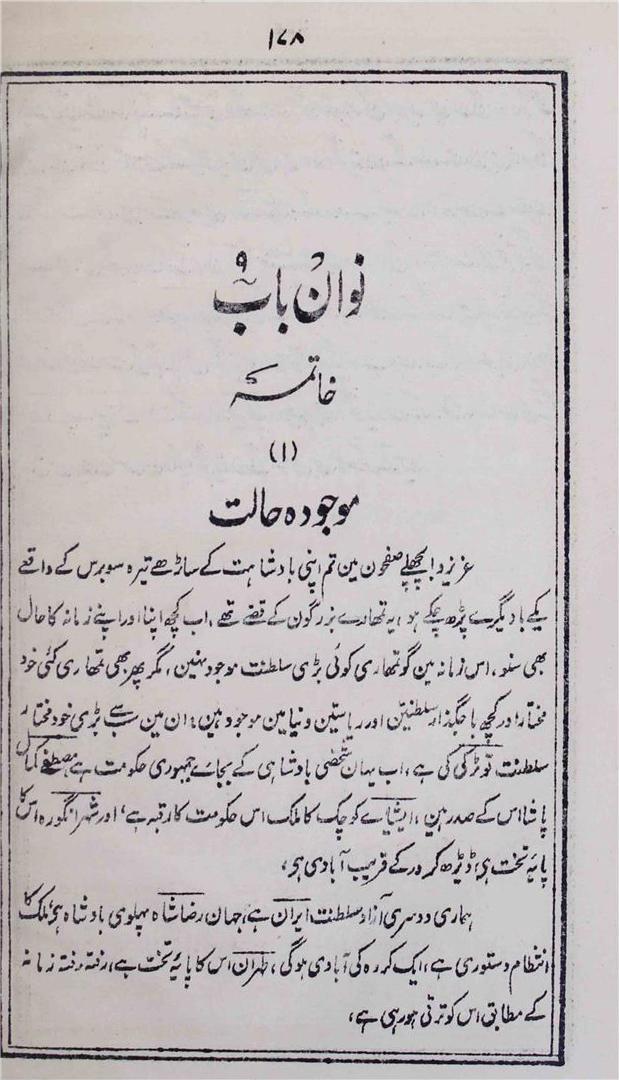 ۱۷۸
نوان باب ۹
خاتمہ
(۱)
موجودہ حالت
عزیزو! پچھلے صفحون مین تم اپنی بادشاہت کے ساڑھے تیرہ سو برس کے واقعے
یکے بادیگرے پڑھ چکے ہو، یہ تمھارے بزرگون کے قصّے تھے، اب کچھ اپنا اور اپنے زمانہ کا حال
بھی سنو، اس زمانہ مین گو تمھاری کوئی بڑی سلطنت موجود نہین، مگر پھر بھی تمھاری کئی خود
مختار اور کچھ باجگذار سلطنتین اور ریاستین دنیا مین موجود ہین، ان مین سب سے بڑی خود مختار
سلطنت تو ٹرکی کی ہے، اب یہان شخصی بادشاہی کے بجاے جمہوری حکومت ہے، مصطفٰے کمال
پاشا اس کے صدر ہین، ایشیاے کوچک کا ملک اس حکومت کا رقبہ ہے، اور شہر انگورہ اس کا
پایۂ تخت ہی، ڈیڑھ کرور کے قریب آبادی ہی،
ہماری دوسری آزاد سلطنت ایران ہے، جہان رضا شاہ پہلوی بادشاہ ہی، ملک کا
انتظام دستوری ہے، ایک کرور کی آبادی ہوگی، طہران اس کا پایۂ تخت ہے، رفتہ رفتہ زمانہ
کے مطابق اس کو ترقی ہو رہی ہے،